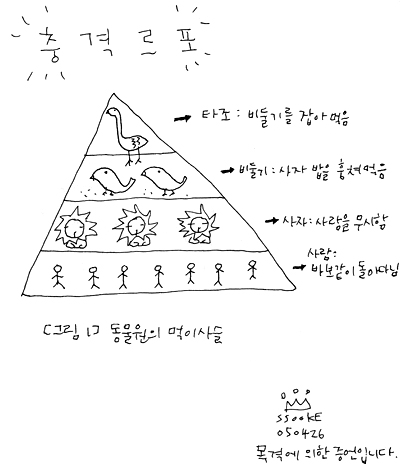 충격르포
타조 : 비둘기를 잡아먹음
비둘기 : 사자 밥을 훔쳐먹음
사자 : 사람을 무시함
사람 :
바보같이 돌아다님
[그림 1] 동물원의 먹이사슬
SSOOKE
050426
목격에 의한 증언입니다.